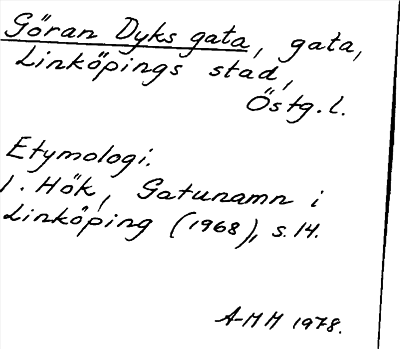 Göran Dyks gata, gata,
Linköpings stad,
Östg.l.
Etymologi.
J. Hök, Gatunamn i
Linköping (1968), s. 14.
A-MM 1978.